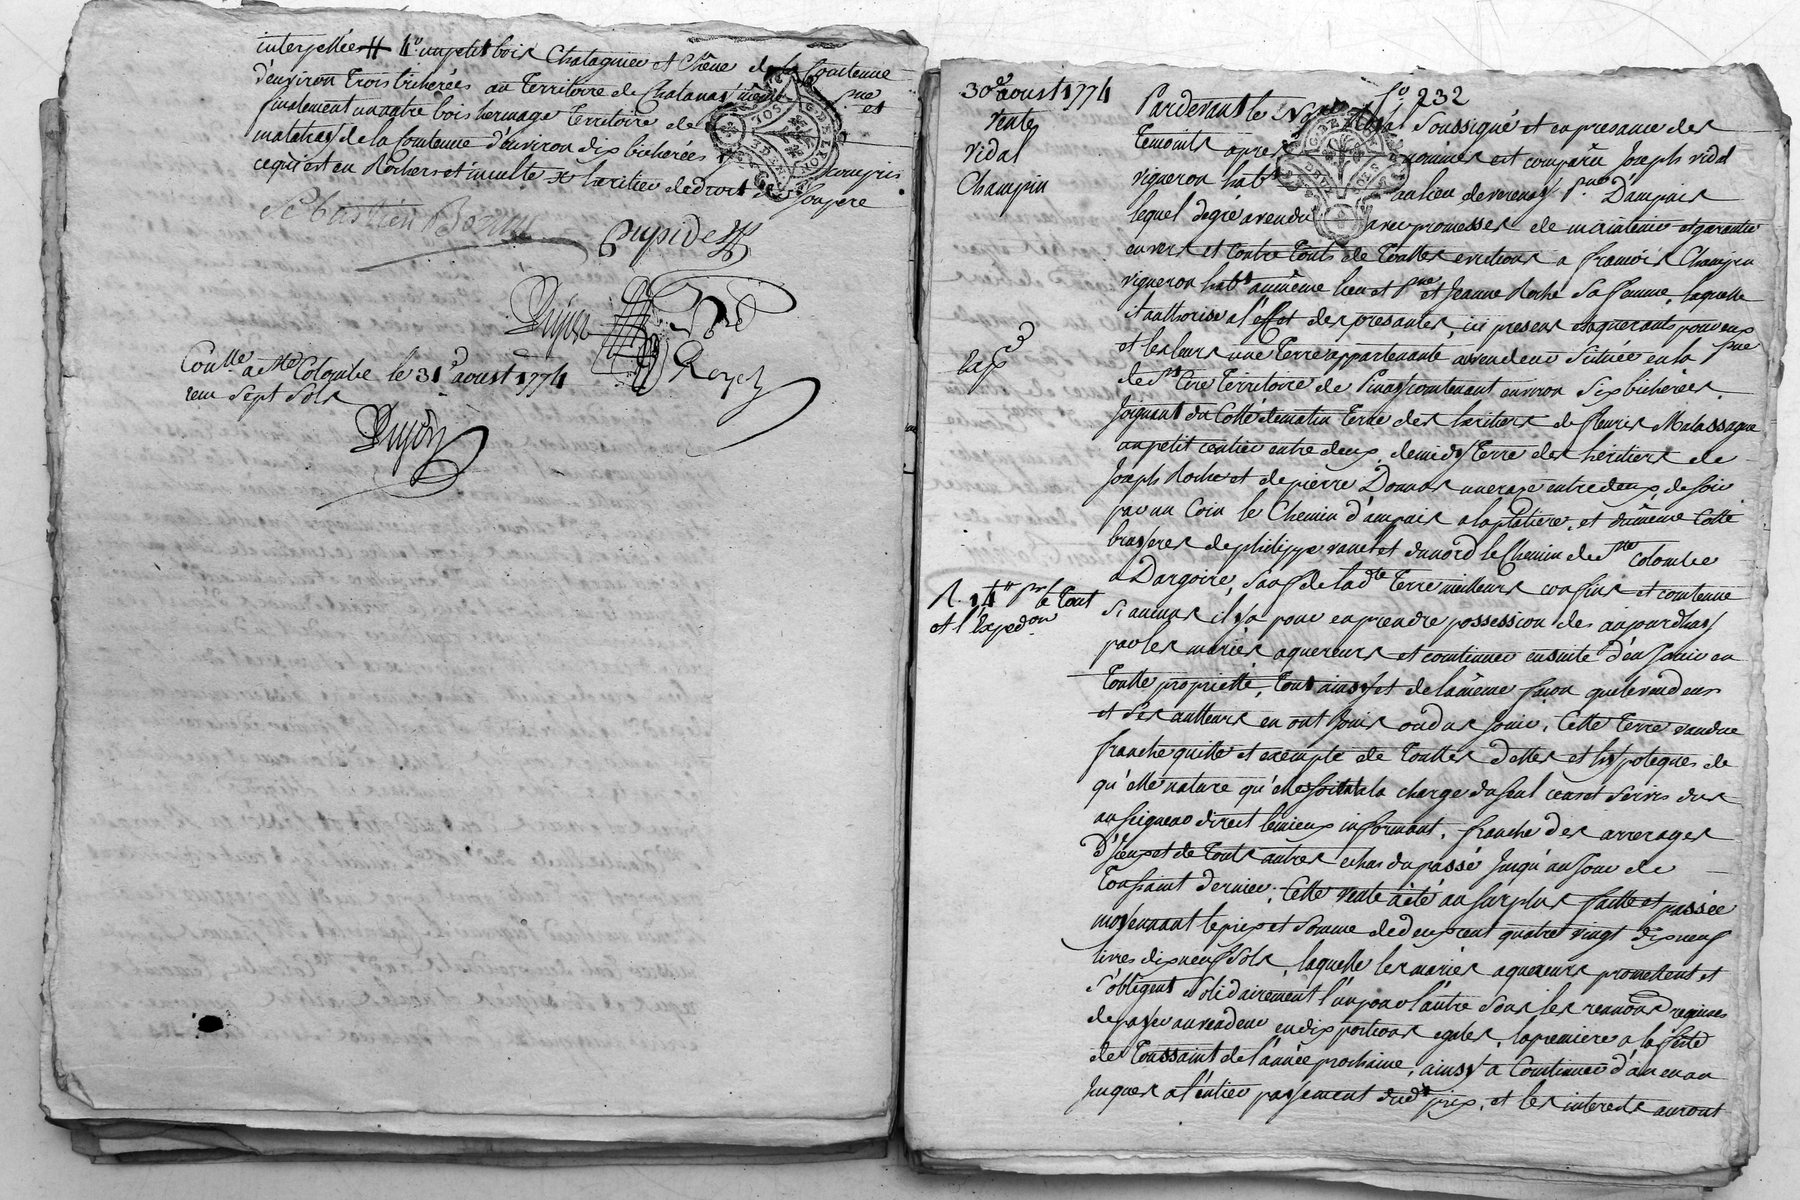 interpellée # 4° un petit bois Chatagnier et Chêne de la Contenue
d'environ trois bicherées au territoire de Chalanas même pnne et
finalement un autre bois hermage territoire de
matelas de la Contenue d'environ dix bicherées y compris
ce qui est en Rochers et inculte # heritier de droit de Son pere
Sébastien Bonnu
Dupidet
Dujon
Conlle a Ste Colombe le 31 d aoust 1774
reçu Sept Sols
Dujon
30e aoust 1774
fo 232
Vente
Vidal
Champin
Exp
R. 14 lt pr le tout
et l'Expedon
Pardevant le Nore Royal Soussigné et en presance des
temoins après nommés est comparu Joseph vidal
vigneron habt au lieu de verenay pnne D'ampuis
lequel de gré a vendu avec promesses de maintenir et garentir
envers et contre touts de touttes evictions a francois Champin
vigneron habt au même lieu et pnne et Jeanne Roche Sa femme, laquelle
il authorise a l'effet des presantes, ici presens et aquerants pour eux
et les leurs une terre appartenante au vendeur Située en la pnne
de St Cire territoire de Pinas contenant environ Six bicherées.
Joignant du Cotté de matin terre des heritiers de fleuris Malassagne
un petit sentier entre deux, de midy terre des héritiers de
Joseph Roche et de pierre Donnas une raze entre deux, de Soir
par un Coin le Chemin d'ampuis a la platiere, et du même Cotté
brasseres de philippe vanet et du nord le Chemin de Ste Colombe
a Dargoire, Sauf de lad te terre meilleurs confins et contenue
Si aucuns il y a pour en prendre possession des aujourdhuy
par les mariés aquereurs et continuer ensuite d'en Jouir en
toutte proprietté, tout ainsy et de la même façon que le vendeur
et Ses autteurs en ont Jouis ou dus Jouir. Cette terre vandue
franche quitte et exempte de touttes dettes et hypoteques de
qu'elle nature qu'elles soient a la charge du Seul cens et Servis dus
au Seigneur direct le mieux informant, franche des arrerages
D'iceux et de touts autres echus du passé Jusqu'au Jour de
Toussaint dernier. Cette vente a été au Surplus faitte et passée
moyennant le prix et Somme de deux cent quatre vingt dix neuf
livres dix neuf Sols, laquelle les mariés aquereurs promettent et
S'obligent Solidairement l'un pour l'autre Sous les renonons requises
de payer au vendeur en dix portions egales, la premiere a la fette
de Toussaint de l'année prochaine, ainsy a Continuer d'an en an
Jusques a l'entier payement dud t prix, et les interets auront